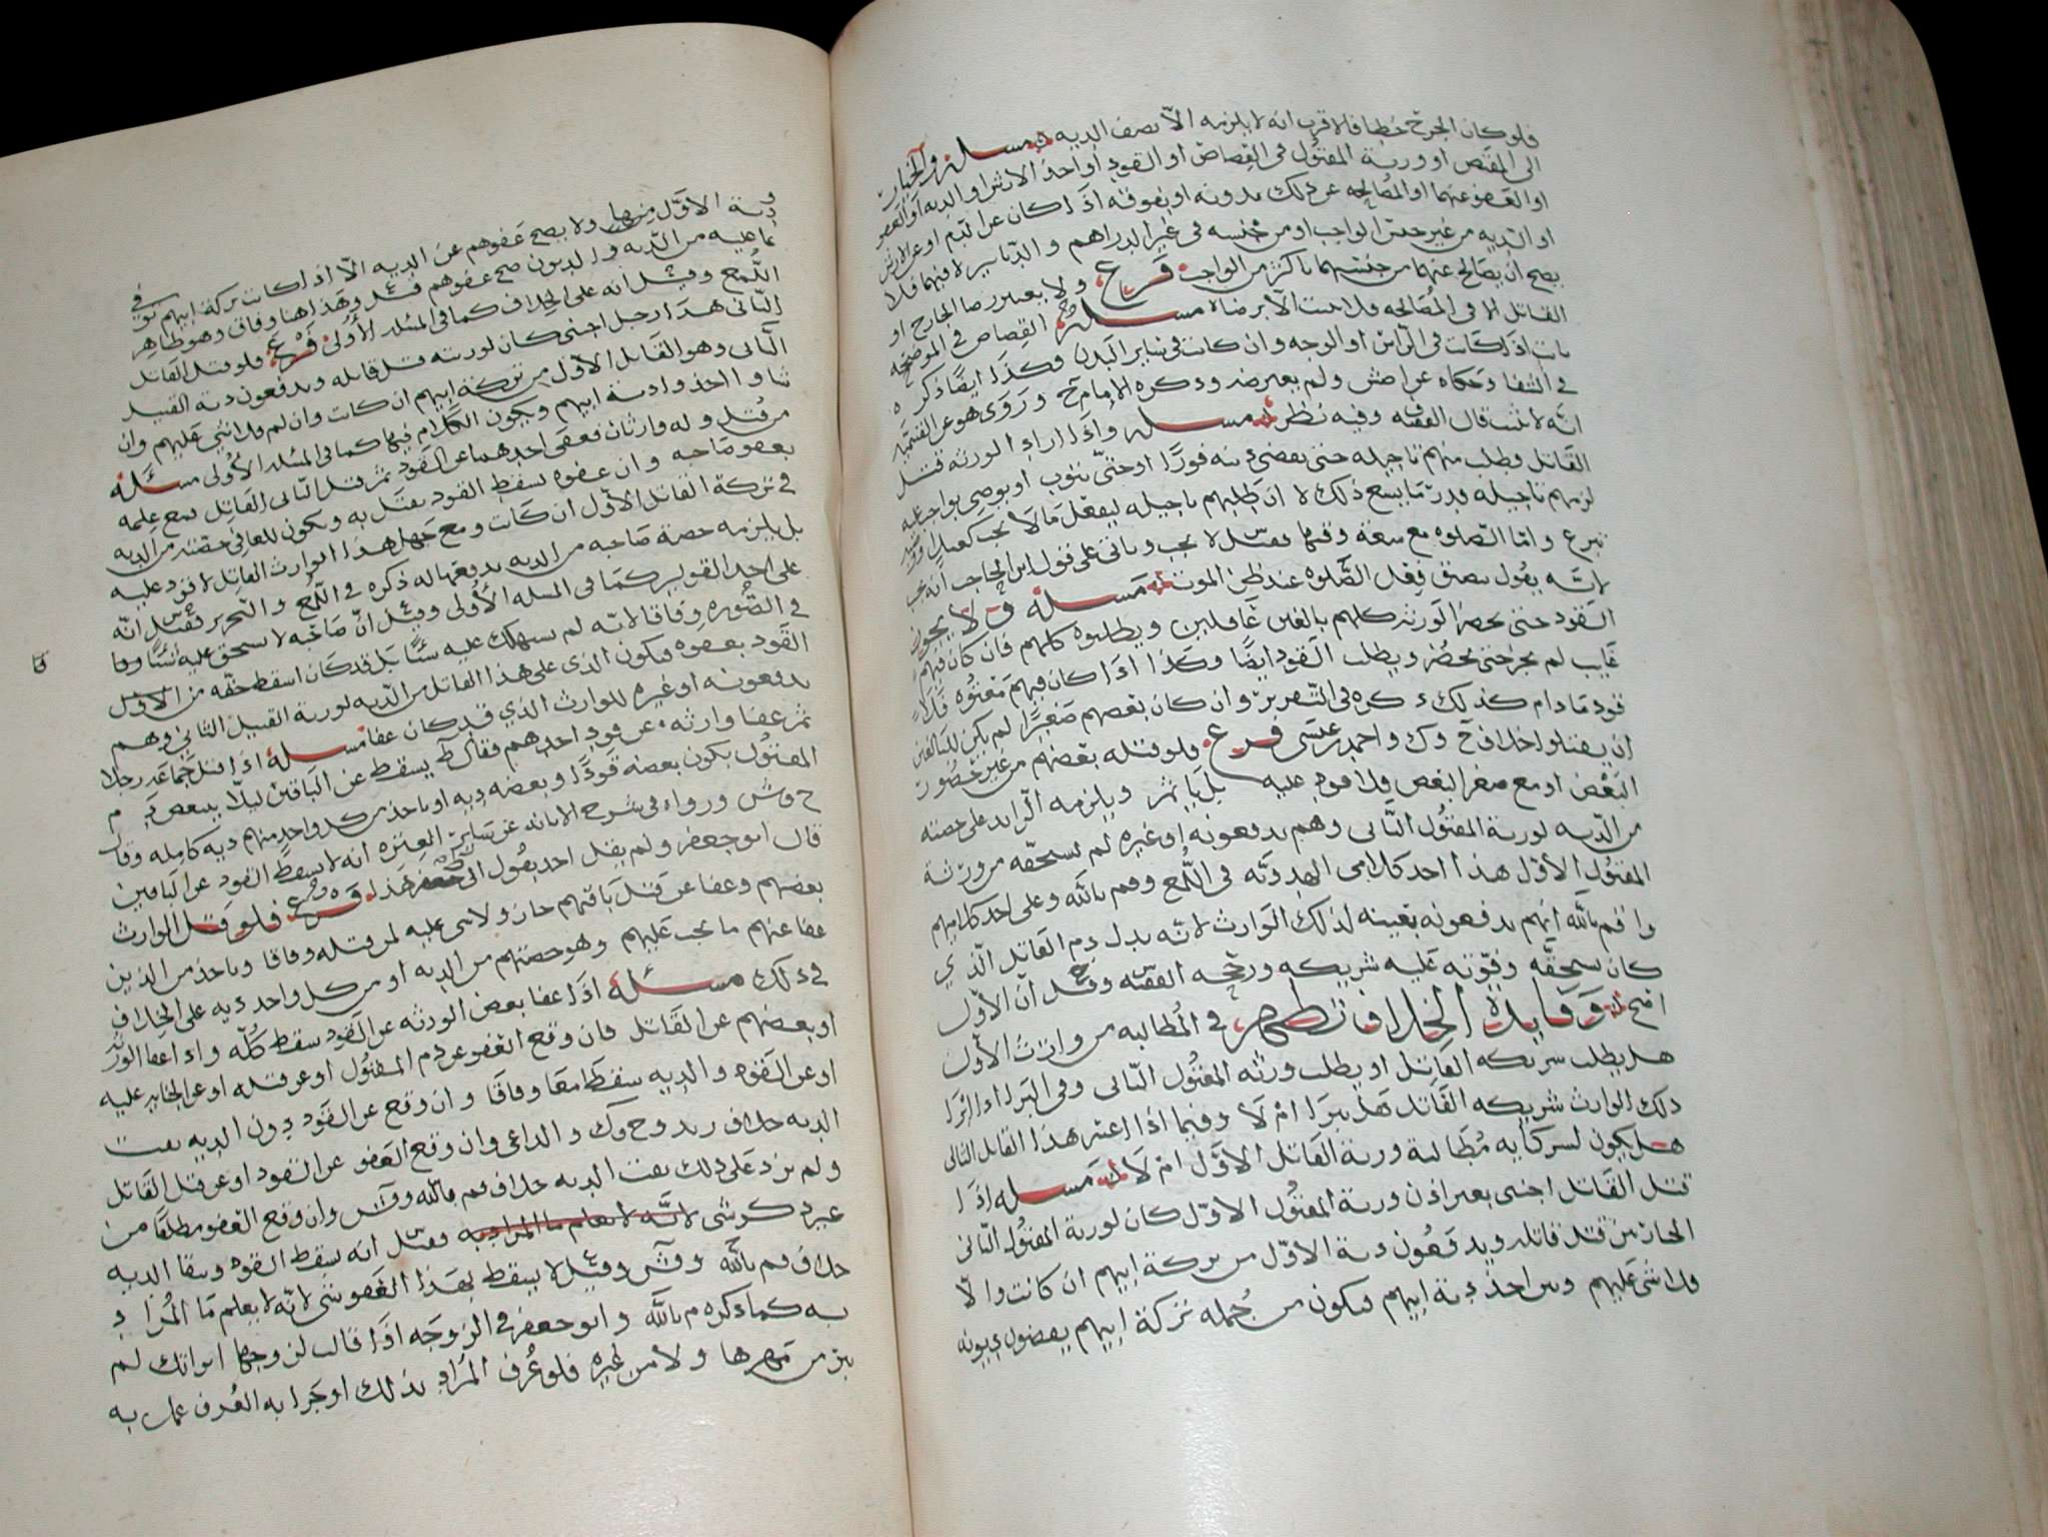 فلو كان الجرح خطا فالاقرب انه لا يلزمه الا نصف الديه مسله والخيار
الى المقتص او ورثة المقتول في القصاص او القود او اخذ الارش او الديه او العفو
او العفو عنهما او المصالحه عن ذلك بدونه او بفوقه اذا كان
او الديه من غير جنس الواجب او من جنسه في غير الدراهم والدنانير لا فيهما فلا
يصح ان يصالح عنهما من جنسهما باكثر من الواجب فرع ولا يعتبر رضا الجارح او
القاتل الا في المصالحه فلا تثبت الا برضاه مسله القصاص في الموضحه
ثابت اذا كانت في الراس او الوجه وان كانت في ساير البدن فكذا ايضا ذكره
في الشفا وحكاه عن ولم يعترضه وذكره الامام ح وروى هو عن القسميه
انه لا يثبت قال الفقيه وفيه نظر مسله واذا اراد الورثه قتل
القاتل وطلب منهم تاجيله حتى يقضي دينه فورا او حتى يتوب او يوصي بواجب عليه
لزمهم تاجيله قدر ما يسع ذلك لا ان طلبهم تاجيله ليفعل ما لا يجب
تبرع واما الصلوه مع سعة وقتها فقيل لا يجب وياتي على قول ابن الحاجب انه يجب
لانه يقول بضيق فعل الصلوه عند ظن الموت مسله ولا يجوز
القود حتى يحضر الورثه كلهم بالغين عاقلين ويطلبوه كلهم فان كان فيهم
غايب لم يجز حتى يحضر ويطلب القود ايضا وكذا اذا كان فيهم معتوه فلا
قود ما دام كذلك ذكره في التقرير وان كان بعضهم صغيرا لم يكن للبالغين
ان يقتلوا خلاف ح وك واحمد بن عيسى فرع فلو قتله بعضهم من غير حضور
البعض او مع صغر البعض فلا قود عليه بل ياثم ويلزمه الزايد على حصته
من الديه لورثة المقتول الثاني وهم يدفعونه او غيره لم يستحقه من ورثة
المقتول الاول هذا احد كلامي الهدويه في اللمع وم بالله وعلى احد كلاميهم
وم بالله انهم يدفعونه بعينه لذلك الوارث لانه بدل دم القاتل الذي
كان يستحقه وفوته عليه شريكه ورجحه الفقيه وقيل ان الاول
اصح وفايدة الخلاف تظهر في المطالبه من وارث الاول
هل يطلب شريكه القاتل او يطلب ورثه المقتول الثاني وفي البرا اذا ابرا
ذلك الوارث شريكه القاتل هل يبرا ام لا وفيما اذا اعسر هذا القاتل الثاني
هل يكون لشركايه مطالبة ورثة القاتل الاول ام لا مسله اذا
قتل القاتل اجنبي بغير اذن ورثة المقتول الاول كان لورثة المقتول الثاني
الخيار بين قتل قاتله ويدفعون دية الاول من تركة ابيهم ان كانت والا
فلا شي عليهم وبين اخذ دية ابيهم فيكون من جمله تركة ابيهم يقضون ديونه
ودية الاول منها ولا يصح عفوهم عن الديه الا اذا كانت تركة ابيهم توفي
بما عليه من الديه والديون صح عفوهم قيل وهذا هنا وفاق وهو ظاهر
اللمع وقيل انه على الخلاف كما في المسله الاولى فرع فلو قتل القاتل
الثاني هذا رجل اجنبي كان لورثته قتل قاتله ويدفعون دية القتيل
الثاني وهو القاتل الاول من تركة ابيهم ان كانت وان لم فلا شي عليهم وان
شاوا اخذوا دية ابيهم ويكون الكلام فيها كما في المسله الاولى مسئله
من قتل وله وارثان فعفى احدهما عن القود ثم قتل الثاني القاتل فمع علمه
بعفو صاحبه وان عفوه يسقط القود يقتل به ويكون للعافي حصته من الديه
في تركة القاتل الاول ان كانت ومع جهل هذا الوارث القاتل لا قود عليه
بل يلزمه حصة صاحبه من الديه يدفعها له ذكره في اللمع والتحرير فقيل انه
على احد القولين كما في المسله الاولى وقيل ان صاحبه لا يستحق عليه شيئا
في الصوره وفاقا لانه لم يستهلك عليه شيئا بل قد كان اسقط حقه من الاول
القود بعفوه فيكون الذي على هذا القاتل من الديه لورثة القتيل الثاني وهم
يدفعونه او غيره للوارث الذي قد كان عفا مسئله اذا قتل جماعه رجلا
ثم عفا وارثه عن قود احدهم فقال ط يسقط عن الباقين ليلا يتبعض دم
المقتول يكون بعضه قودا وبعضه ديه او ياخذ من كل واحد منهم ديه كامله وقال
ح وش ورواه في شرح الابانه عن ساير العتره انه لا يسقط القود عن الباقين
قال ابو جعفر ولم يقل احد بقول ابي هذا فرع فلو قتل الوارث
بعضهم وعفا عن قتل باقيهم جاز ولا شي عليه لمن قتله وفاقا وياخذ من الذين
عفا عنهم ما يجب عليهم وهو حصتهم من الديه او من كل واحد ديه على الخلاف
في ذلك مسئله اذا عفا بعض الورثه عن القود سقط كله واذا عفا الورثه
او بعضهم عن القاتل فان وقع العفو عن دم المقتول او عن قتله او عن الجنايه عليه
او عن القود والديه سقطا معا وفاقا وان وقع عن القود دون الديه بقت
الديه خلاف زيد وح وك والداعي وان وقع العفو عن القود او عن قتل القاتل
ولم يزد على ذلك بقت الديه خلاف م بالله وان وقع العفو مطلقا من
غير ذكر شي لانه لا يعلم ما المراد به فقيل انه يسقط القود وبقا الديه
خلاف م بالله وقيل لا يسقط بهذا العفو شي لانه لا يعلم ما المراد
به كما ذكره م بالله وابو جعفر في الزوجه اذا قالت لزوجها ابراتك لم
يبر من مهرها ولا من غيره فلو عرف المراد بذلك او جرا به العرف عمل به